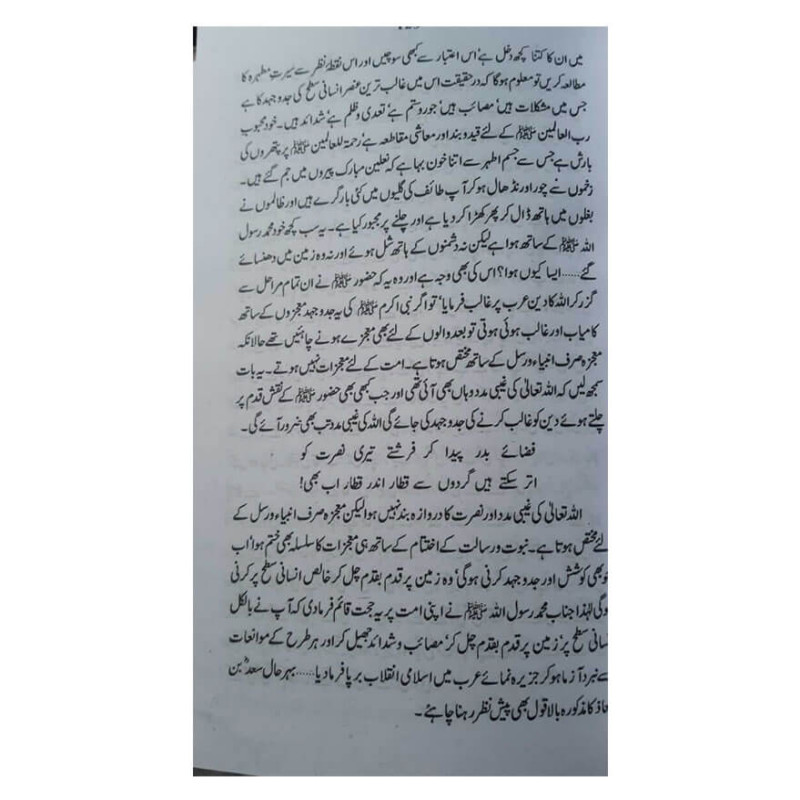 میں ان کا کتنا کچھ دخل ہے‘ اس اعتبار سے کبھی سوچیں اور اس نقطۂ نظر سے سیرتِ مطہرہ کا
مطالعہ کریں تو معلوم ہوگا کہ درحقیقت اس میں غالب ترین عنصر انسانی سطح کی جدوجہد کا ہے
جس میں مشکلات ہیں‘ مصائب ہیں‘ جور و ستم ہے‘ تعدی و ظلم ہے‘ شدائد ہیں۔ خود محبوب
رب العالمین ﷺ کے لئے قید و بند اور معاشی مقاطعہ ہے‘ رحمۃ للعالمین ﷺ پر پتھروں کی
بارش ہے جس سے جسم اطہر سے اتنا خون بہا ہے کہ نعلین مبارک پیروں میں جم گئے ہیں۔
زخموں نے چور اور نڈھال ہو کر آپ طائف کی گلیوں میں کئی بار گرے ہیں اور ظالموں نے
بغلوں میں ہاتھ ڈال کر پھر کھڑا کر دیا ہے اور چلنے پر مجبور کیا ہے۔ یہ سب کچھ خود محمد رسول
اللہ ﷺ کے ساتھ ہوا ہے لیکن نہ دشمنوں کے ہاتھ شل ہوئے اور نہ وہ زمین میں دھنسائے
گئے...... ایسا کیوں ہوا؟ اس کی بھی وجہ ہے اور وہ یہ کہ حضور ﷺ نے ان تمام مراحل سے
گزر کر اللہ کا دین عرب پر غالب فرمایا‘ تو اگر نبی اکرم ﷺ کی یہ جدوجہد معجزوں کے ساتھ
کامیاب اور غالب ہوئی ہوتی تو بعد والوں کے لئے بھی معجزے ہونے چاہئیں تھے حالانکہ
معجزہ صرف انبیاء و رسل کے ساتھ مختص ہوتا ہے۔ امت کے لئے معجزات نہیں ہوتے۔ یہ بات
سمجھ لیں کہ اللہ تعالیٰ کی غیبی مدد وہاں بھی آئی تھی اور جب کبھی بھی حضور ﷺ کے نقش قدم پر
چلتے ہوئے دین کو غالب کرنے کی جدوجہد کی جائے گی اللہ کی غیبی مدد تب بھی ضرور آئے گی۔
فضائے بدر پیدا کر فرشتے تیری نصرت کو
اتر سکتے ہیں گردوں سے قطار اندر قطار اب بھی!
اللہ تعالیٰ کی غیبی مدد اور نصرت کا دروازہ بند نہیں ہوا لیکن معجزہ صرف انبیاء و رسل کے
لئے مختص ہوتا ہے۔ نبوت و رسالت کے اختتام کے ساتھ ہی معجزات کا سلسلہ بھی ختم ہوا‘ اب
جو بھی کوشش اور جدوجہد کرنی ہوگی‘ وہ زمین پر قدم بقدم چل کر خالص انسانی سطح پر کرنی
ہوگی لہٰذا جناب محمد رسول اللہ ﷺ نے اپنی امت پر یہ حجت قائم فرما دی کہ آپ نے بالکل
انسانی سطح پر‘ زمین پر قدم بقدم چل کر‘ مصائب و شدائد جھیل کر اور ہر طرح کے موانعات
سے نبرد آزما ہو کر جزیرہ نمائے عرب میں اسلامی انقلاب برپا فرما دیا...... بہر حال سعدؓ بن
معاذ کا مذکورہ بالا قول بھی پیش نظر رہنا چاہئے۔